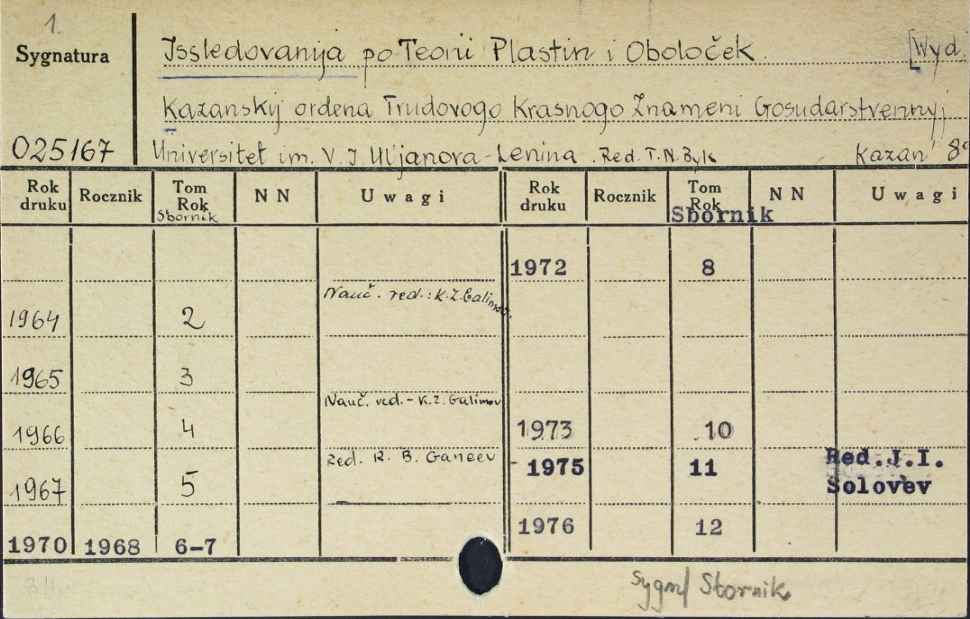 1.
Sygnatura
Issledovanija po Teorii Plastin i Oboloček [Wyd.
Kazanskij ordena Trudovogo Krasnogo Znameni Gosudarstvennyj
025167 Universitet im. V. I. Ul'janova-Lenina. Red. T.N. Byk Kazan' 8°
Rok druku Rocznik Tom Rok Sbornik NN Uwagi Rok druku Rocznik Tom Rok Sbornik NN Uwagi
1972 8
1964 2 Nauč. red.: K.Z. Galimov
1965 3
1966 4 Nauč. red. - K.Z. Galimov 1973 10
1967 5 Red. R. B. Ganeev 1975 11 Red.J.I. Solov'ev
1976 12
1970 1968 6-7
Sygn/ Sbornik